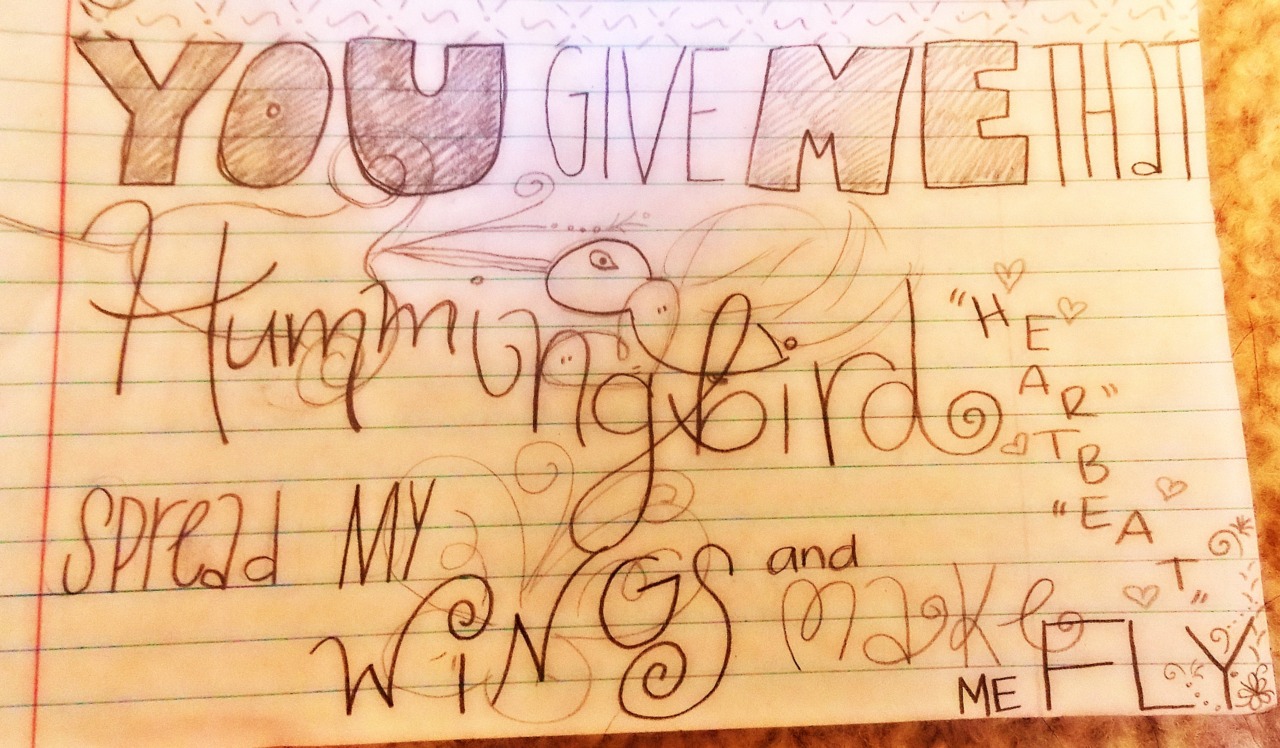 YOU GIVE ME THAT
Hummingbird
"HEART"
"BEAT"
spread MY
WiNGS and make
ME FLY